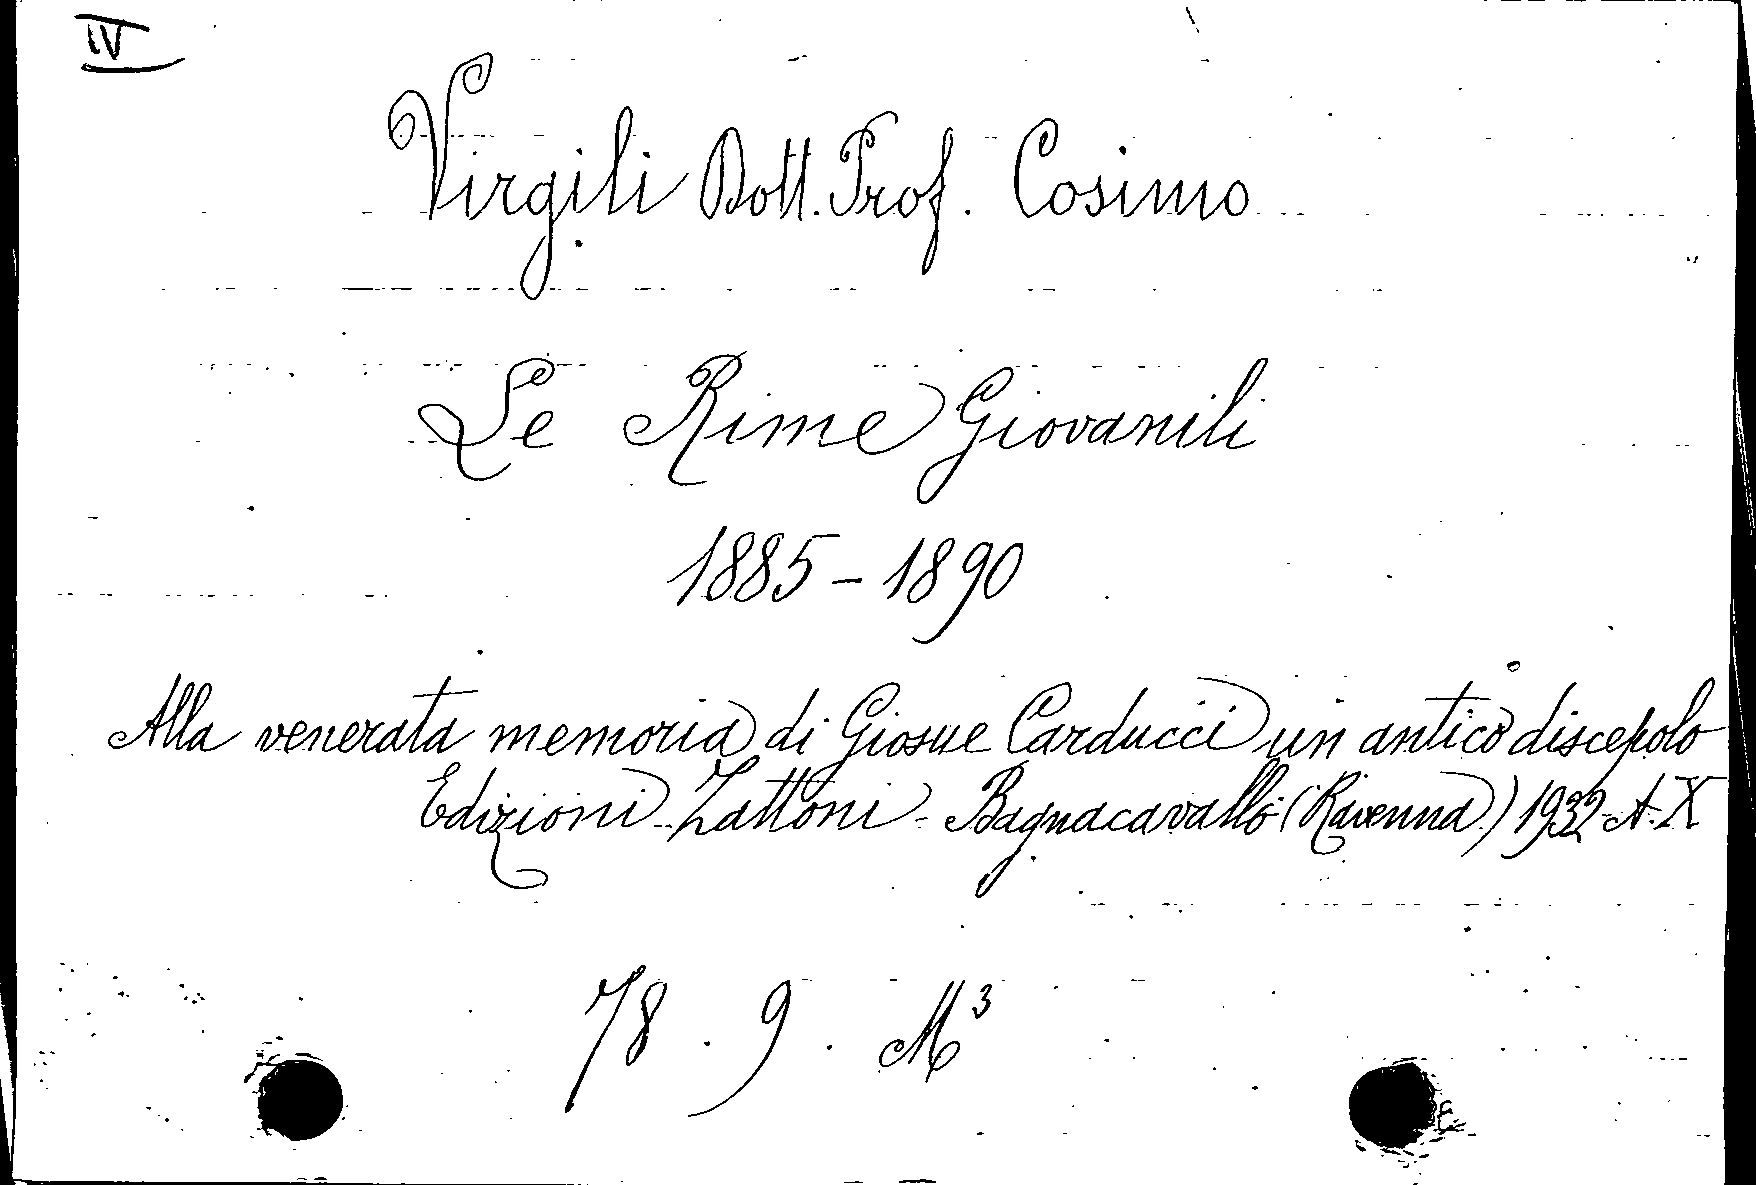 IV
Virgili Dott. Prof. Cosimo
Le Rime Giovanili
1885-1890
Alla venerata memoria di Giosue Carducci un antico discepolo
Edizioni Zattoni - Bagnacavallo (Ravenna) 1932 A. X
78. 9. M³